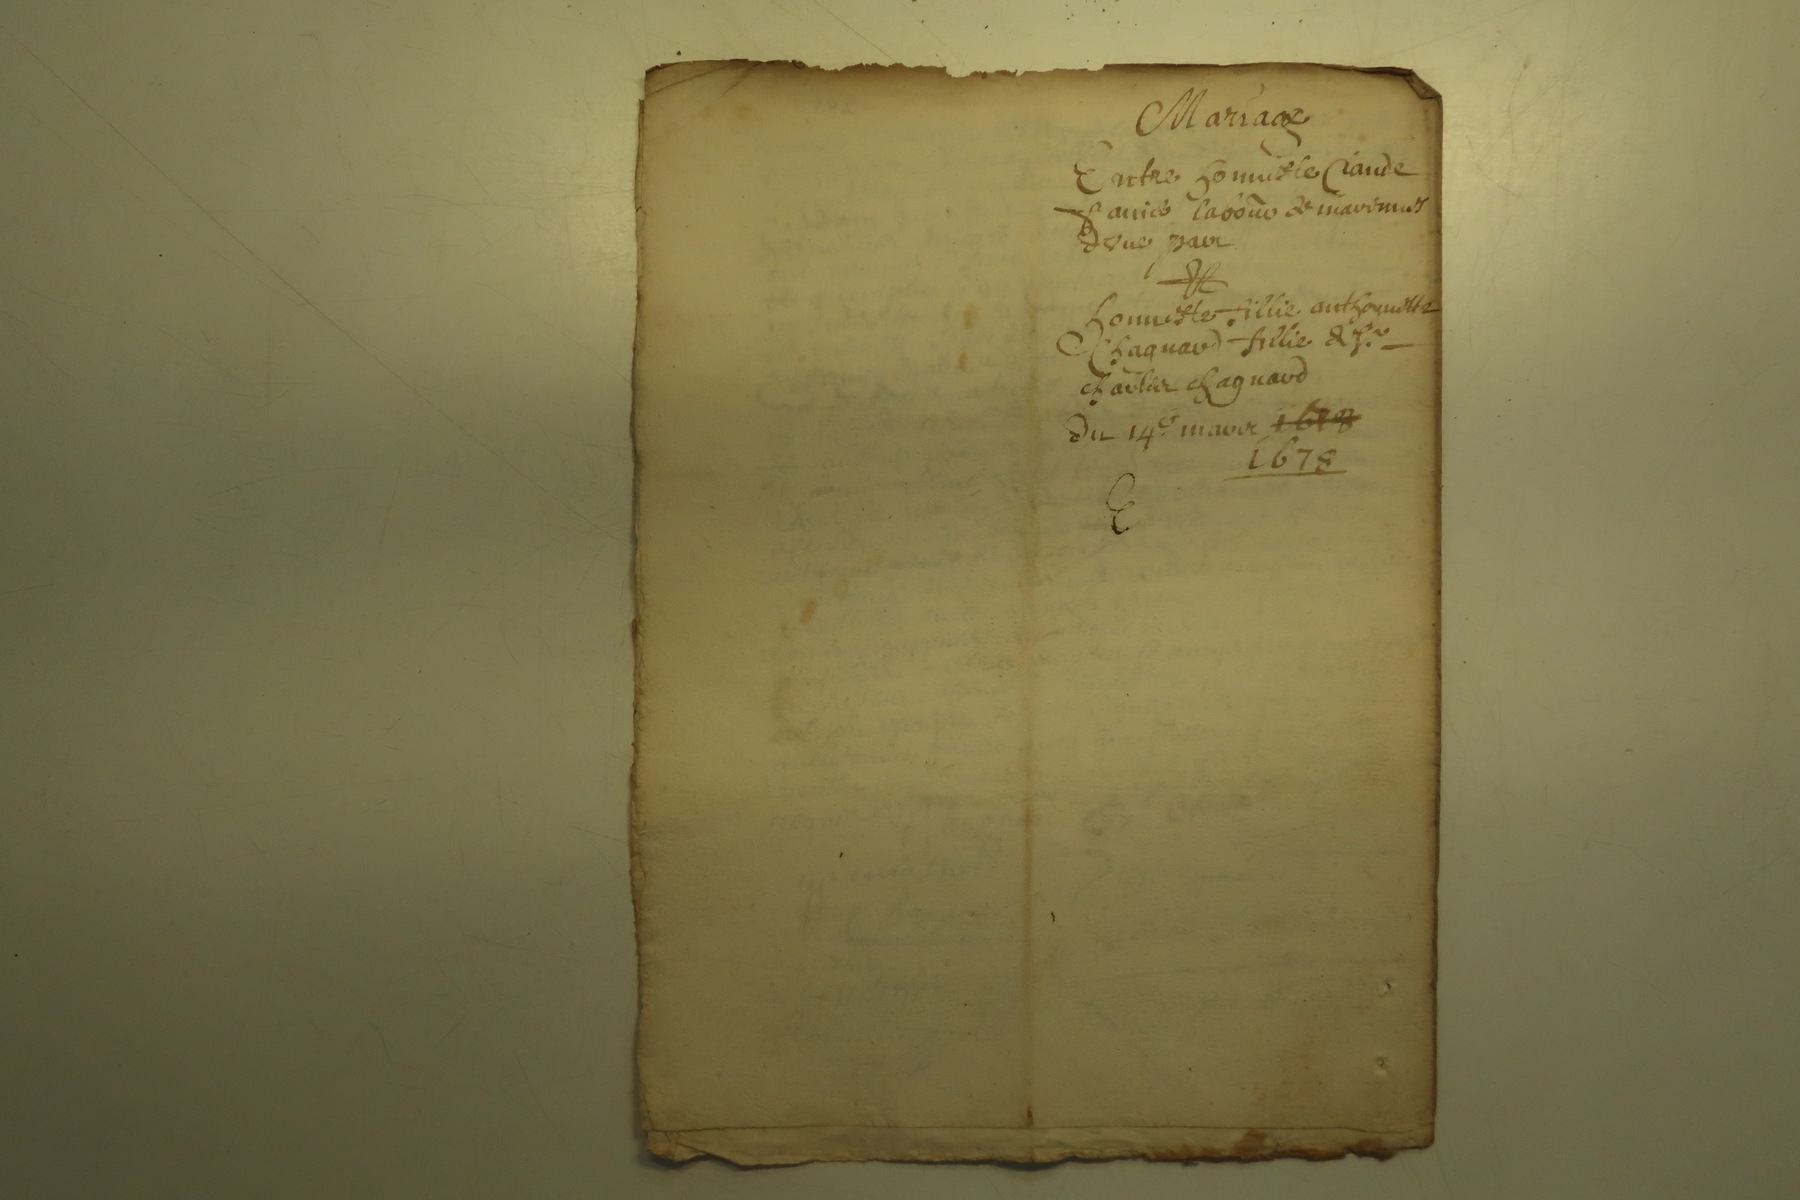 Mariage
Entre honneste Claude
labour de
d'vne part
Et
honneste fillie anthoynette
Chagnard fillie de sr
charles chagnard
du 14e mars 1678
1678
E